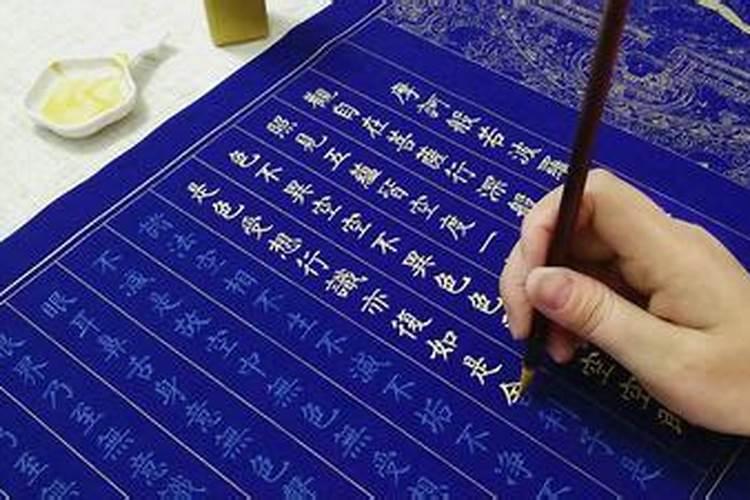 摩訶般若波羅
觀自在菩薩行深般
照見五蘊皆空度一
色不異空空不異色色空空即
是色受想行識亦復如是舍利子是
諸法空相不生不滅不垢不淨
不減是故空中無色無受想
眼耳鼻舌身意無色聲
界乃至無意識
至無